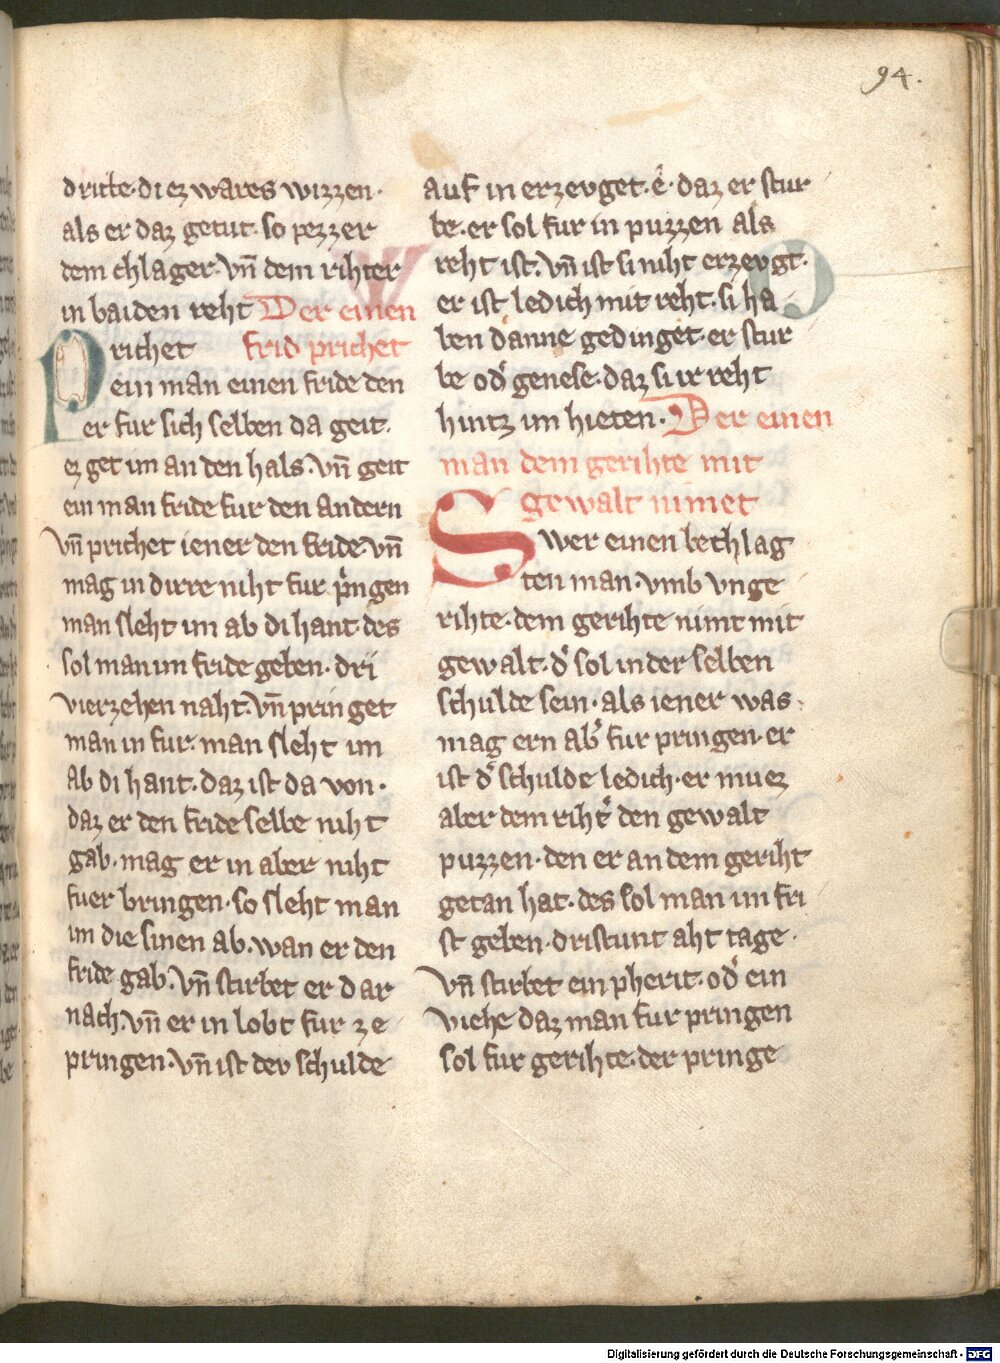 94.
dritte·di ez wares wizzen·
als er daz getut·so pezzer
dem chlager·vn̄ dem rihter
in baiden reht Der einen
Prichet frid prichet
ein man einen fride den
er fur sich selben da geit·
ez get im an den hals·vn̄ geit
ein man fride fur den andern
vn̄ prichet iener den fride vn̄
mag in dirre niht fur pͥngen
man sleht im ab di hant·des
sol man im fride geben·dri
vierzehen naht·vn̄ pringet
man in fur·man sleht im
ab di hant·daz ist da von·
daz er den fride selbe niht
gab·mag er in aber niht
fuer bringen·so sleht man
im die sinen ab·wan er den
fride gab·vn̄ stirbet er dar
nach·vn̄ er in lobt fur ze
pringen·vn̄ ist dev schulde
auf in erzevget·e·daz er stur
be·er sol fur in puzzen als
reht ist·vn̄ ist si niht erzevgt·
er ist ledich mit reht·si ha
ben danne gedinget·er stur
be od̓ genese·daz si ir reht
hintz im hieten·Der einen
man dem gerihte mit
gewalt nimet
Swer einen bechlag
ten man·vmb vnge
rihte·dem gerihte nimt mit
gewalt·d̓ sol in der selben
schulde sein·als iener was·
mag ern ab̓ fur pringen·er
ist d̓ schulde ledich·er muez
aber dem riht̓ den gewalt
puzzen·den er an dem geriht
getan hat·des sol man im fri
st geben·dristunt aht tage·
vn̄ stirbet ein pherit·od̓ ein
viehe daz man fur pringen
sol fur gerihte·der pringe
Digitalisierung gefördert durch die Deutsche Forschungsgemeinschaft - DFG